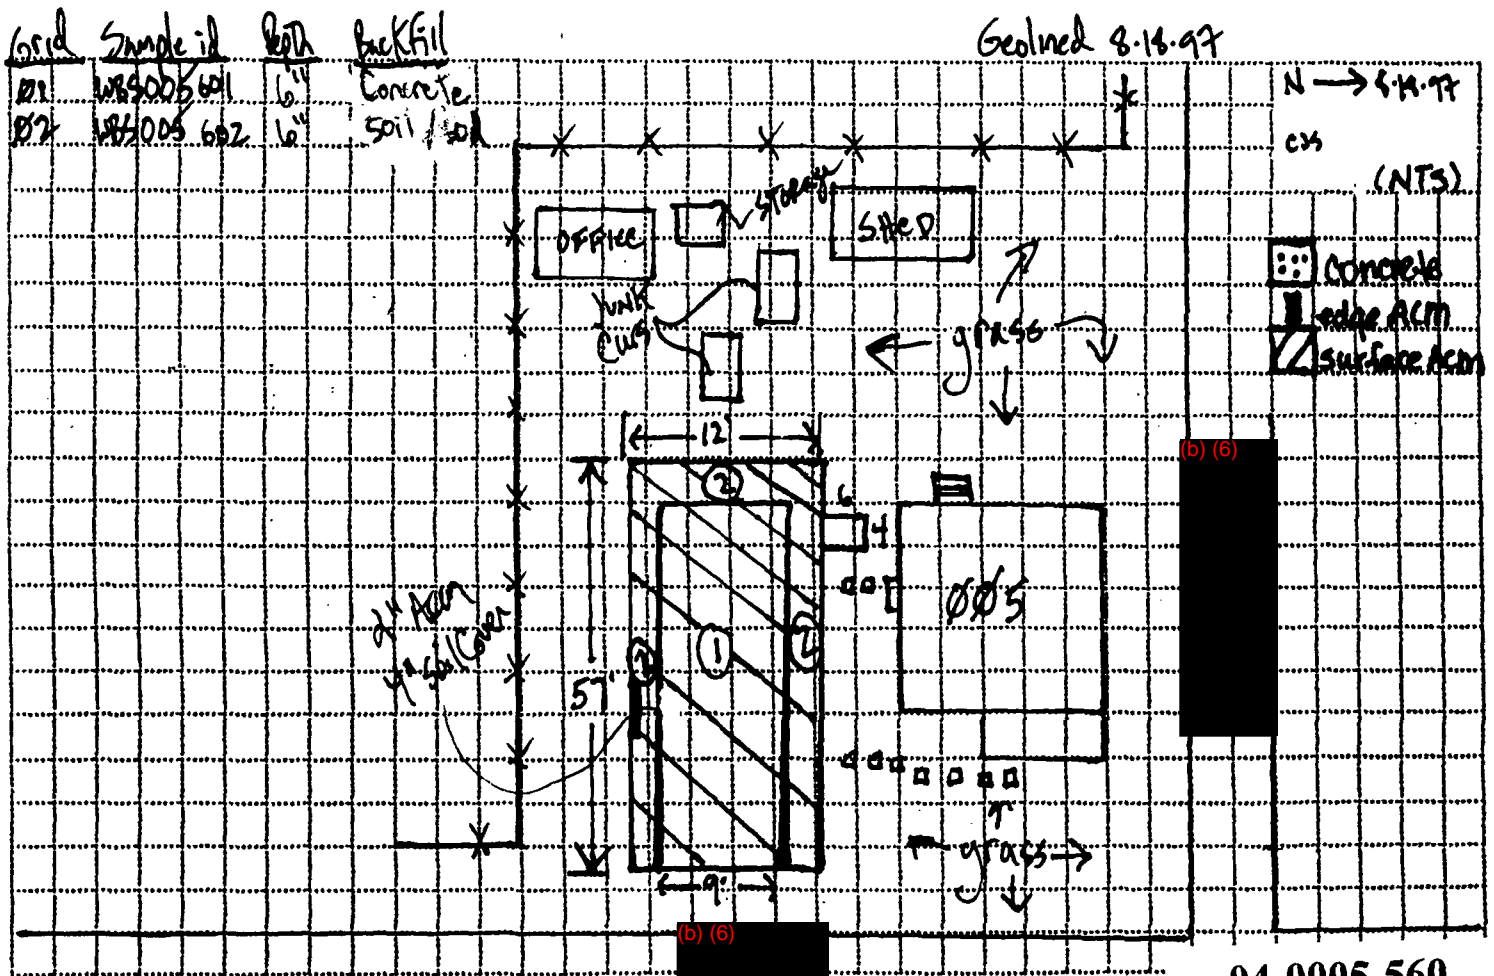 Grid Sample id Depth Backfill
Ø1 WBS005601 6" Concrete
Ø2 WBS005602 6" Soil / sod
Geolined 8.18.97
N → 8.18.97
(NTS)
Concrete
edge Acm
surface Acm
OFFICE
STORAGE
SHED
Junk
grass
12'
2
6
4
ØØ5
2" Acm
4" Soil Cover
57'
2
1
2
9'
grass
(b) (6)
(b) (6)
94-0005-560